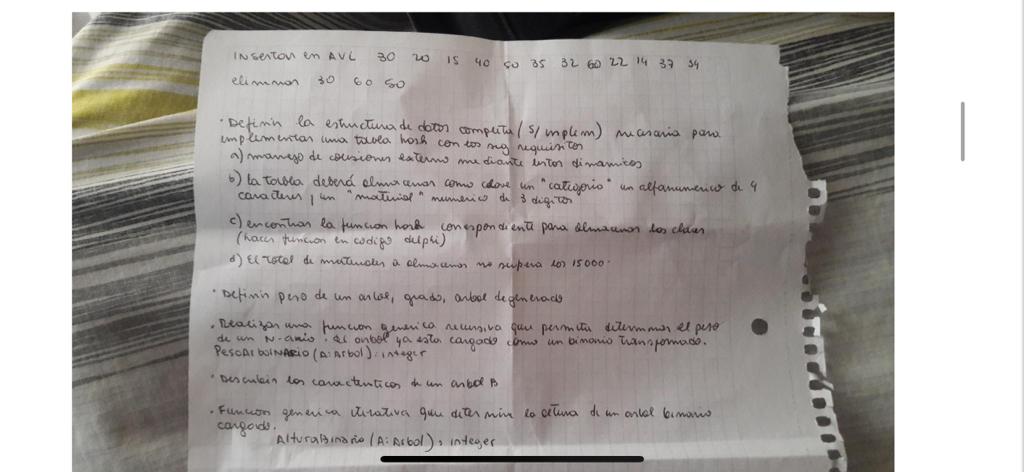 Insertar en AVL 30 20 15 40 50 35 32 60 22 14 37 34
eliminar 30 60 50
• Definir la estructura de datos completa (s/implem) necesaria para
implementar una tabla hash con los sig requisitos
a) manejo de colisiones externo mediante listas dinamicas
b) la tabla deberá almacenar como clave un "categoria" un alfanumerico de 4
caracteres, un "material" numerico de 3 digitos
c) encontrar la funcion hash correspondiente para almacenar las claves
(hacer funcion en codigo delphi)
d) El total de materiales a almacenar no supera los 15000.
• Definir peso de un arbol, grado, arbol degenerado
• Realizar una funcion generica recursiva que permita determinar el peso
de un N-ario. El arbol ya esta cargado como un binario transformado.
PesoArbolNArio (A: Arbol): integer
• Describir las caracteristicas de un arbol B
• Funcion generica iterativa que determine la altura de un arbol binario
cargado.
AlturaBinario (A: Arbol): integer